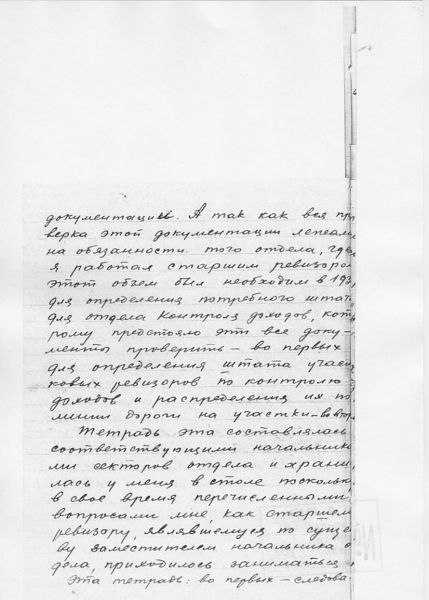 документации. А так как вся про
верка этой документации лежала
на обязанности того отдела, где
я работал старшим ревизором
этот объем был необходим в 193
для определения потребного штата
для отдела контроля доходов, кото
рому предстояло эти все доку-
менты проверить – во первых
для определения штата участ
ковых ревизоров по контролю
доходов и распределения их по
линии дороги на участки – во втор
Тетрадь эта составлялась
соответствующими начальника
ми секторов отдела и храни
лась у меня в столе поскольку
в свое время перечисленными
вопросами мне, как старшему
ревизору, являвшемуся по суще
ву заместителем начальника о
дела, приходилось заниматься
Эта тетрадь: во первых – следова-